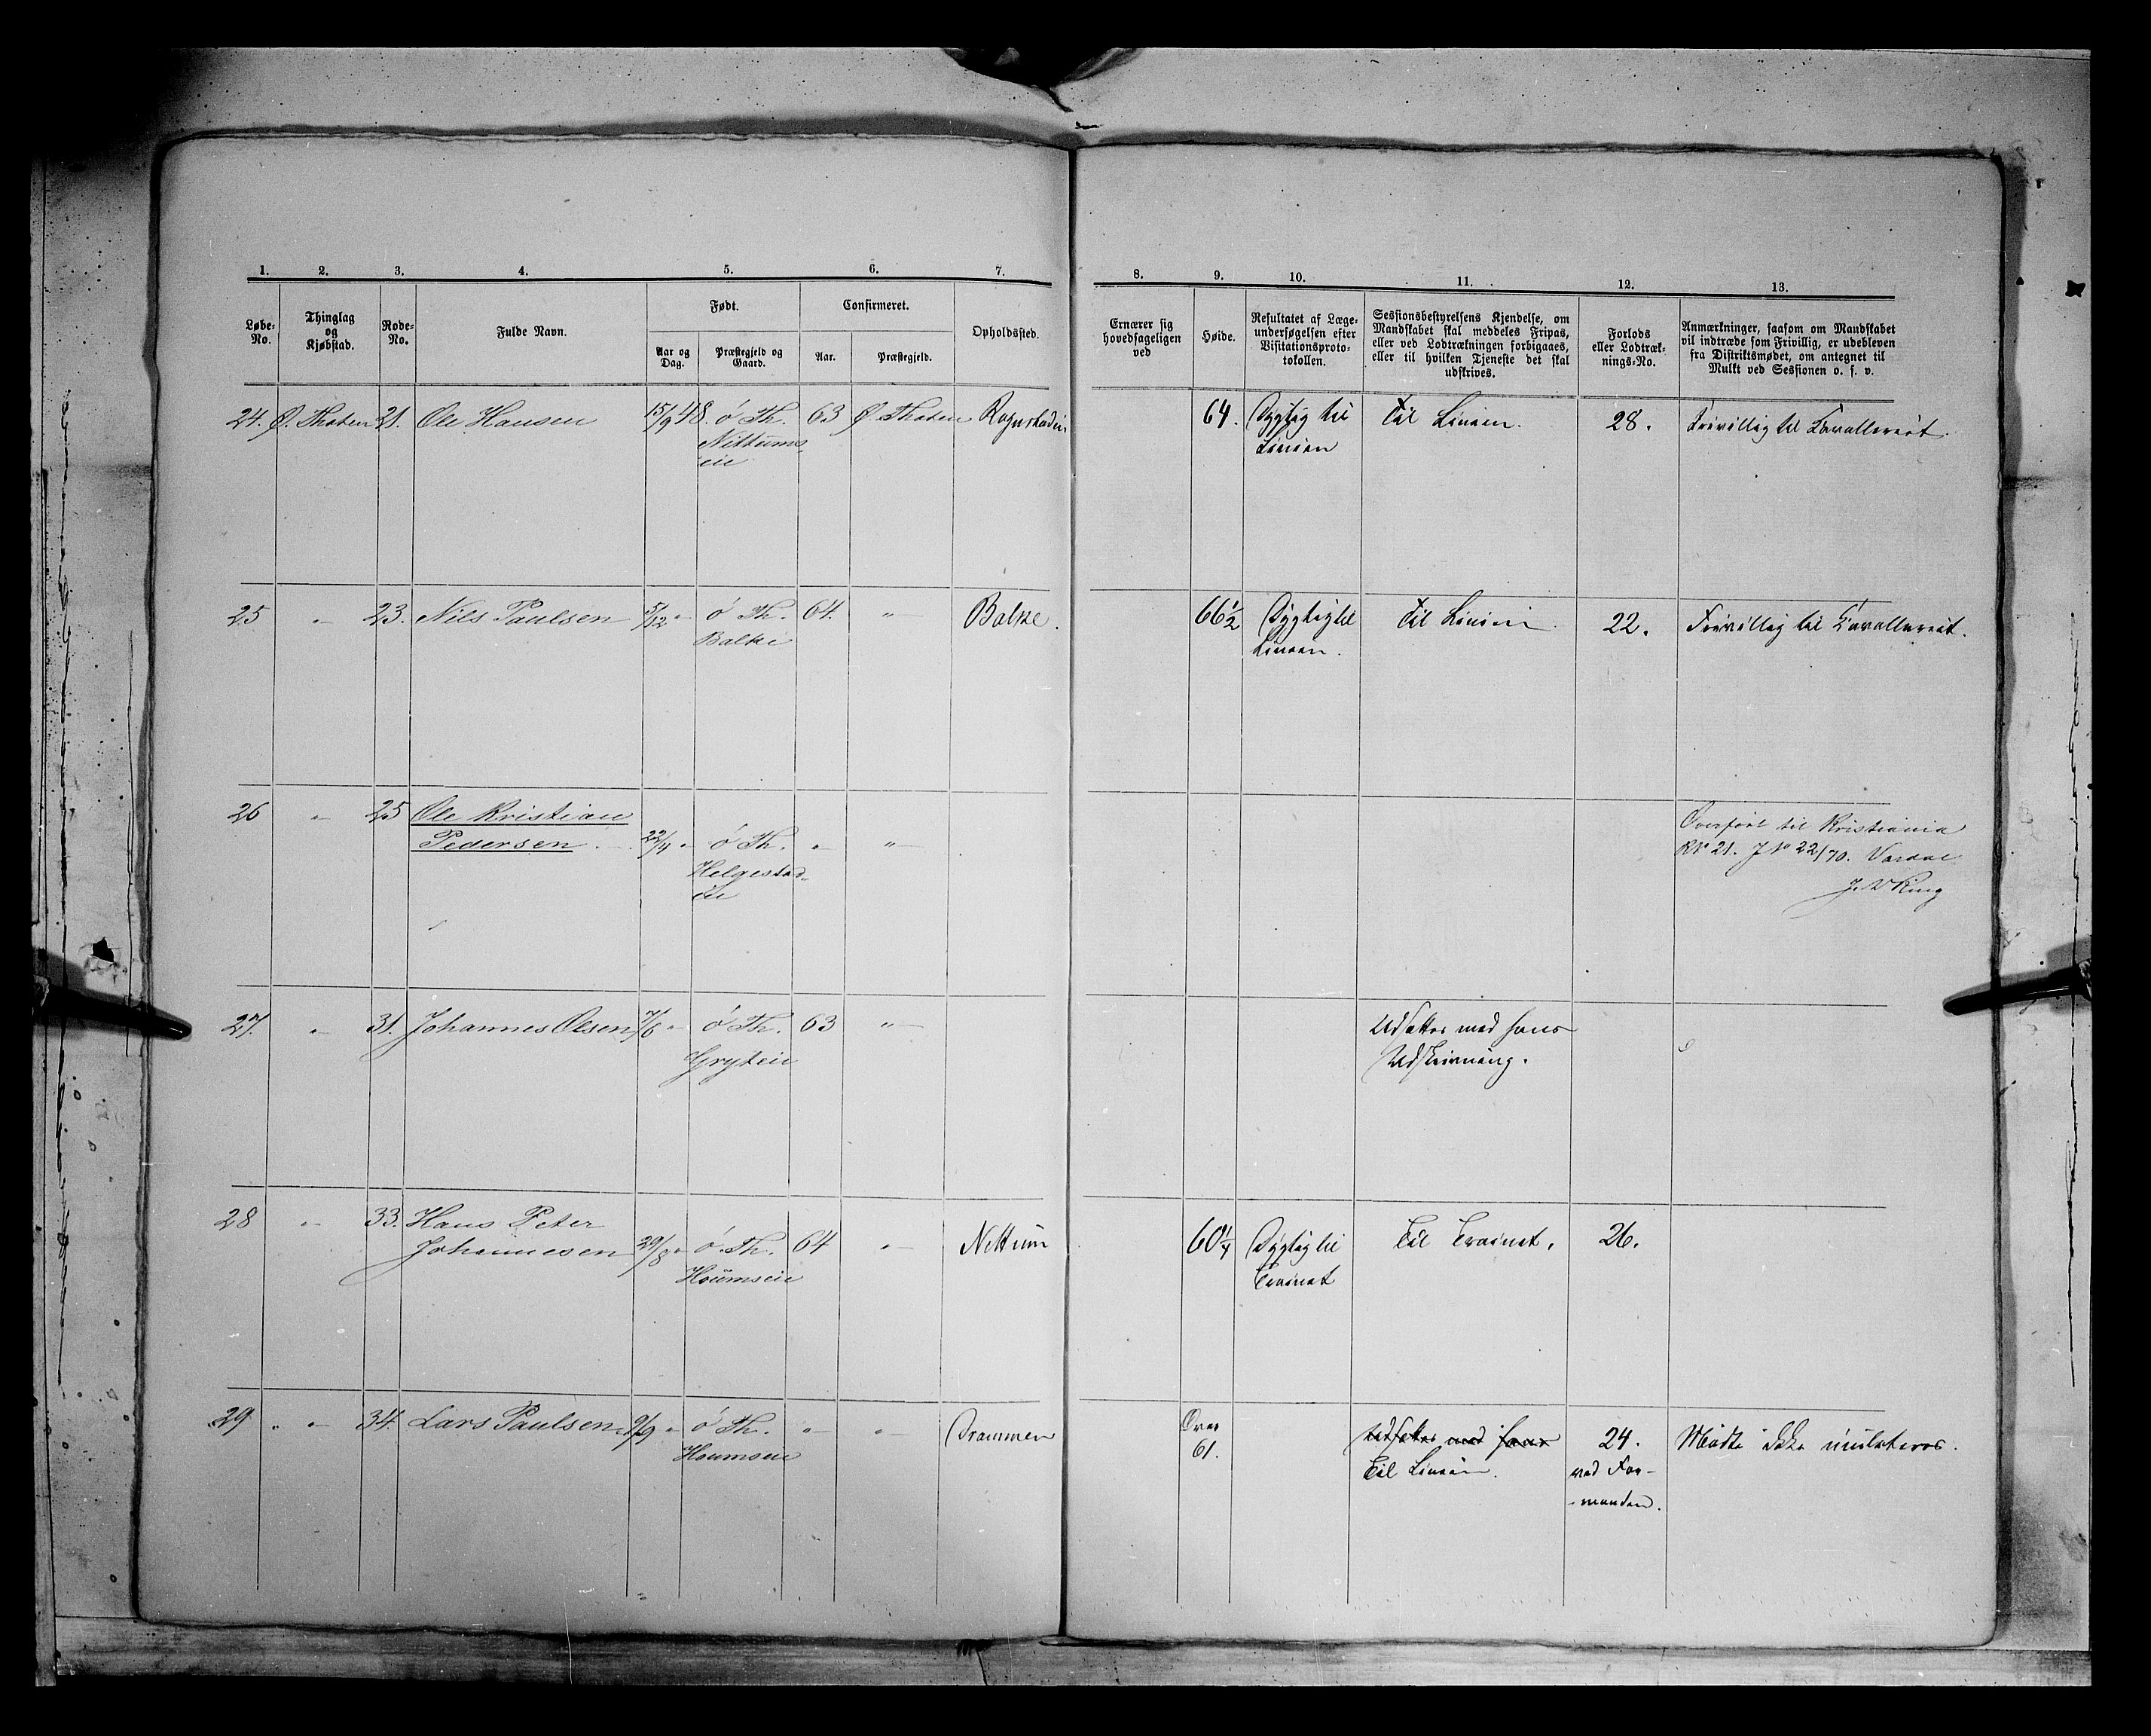 1. 2. 3. 4. 5. 6. 7. 8. 9. 10. 11. 12. 13.
Løbe-No.
Thinglag og Kjøbstad.
Rode-No.
Fulde Navn.
Født.
Aar og Dag.
Præstegjeld og Gaard.
Confirmeret.
Aar.
Præstegjeld.
Opholdssted.
Ernærer sig hovedsageligen ved
Høide.
Resultatet af Læge-undersøgelsen efter Visitationsproto-tokollen.
Sessionsbestyrelsens Kjendelse, om Mandskabet skal meddeles Fripas, eller ved Lodtrækningen forbigaaes, eller til hvilken Tjeneste det skal udskrives.
Forlods eller Lodtræk-nings-No.
Anmærkninger, saasom om Mandskabet vil indtræde som Frivillig, er udebleven fra Distriktsmødet, om antegnet til Mulkt ved Sessionen o. s. v.
24. Ø. Thoten 21. Ole Hansen 15/9 48. ø Th. 63 Ø. Thoten 64. Dygtig til Til Linien. 28. Frivillig til Cavalleriet.
Nittums Linien
eie
25 " 23. Nils Paulsen 5/12 " ø Th. 64. " Balke. 66½ Dygtig til Til Linien 22. Frivillig til Cavalleriet.
Balke Linien.
26 " 25 Ole Kristian Overført til Kristiania
Pedersen 22/4 " ø Th. " " RNo 21. JNo 22/70. Vardal
Helgestad-
eie
27. " 31. Johannes Olsen 7/6 " ø Th. 63 " Udsættes med hans
Gryteie Udskrivning.
28 " 33. Hans Peter
Johannesen 29/8 " ø. Th. 64 " Nettum 60¼ Dygtig til Til Trainet. 26.
Houmseie Trainet
29 " 34. Lars Paulsen 9/9 " ø Th. " " Drammen Over Udsættes med hans 24. Mødte ikke mulkteres.
Houmseie 61. Til Linien. ved For-
-manden.